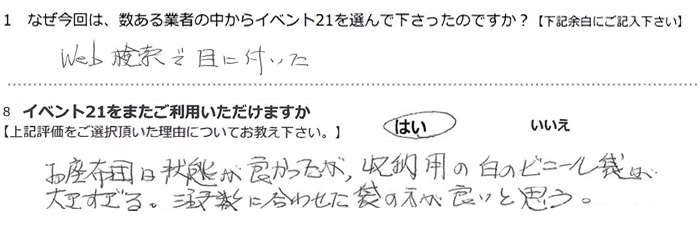 1 なぜ今回は、数ある業者の中からイベント21を選んで下さったのですか？【下記余白にご記入下さい】
Web検索で目に付いた
8 イベント21をまたご利用いただけますか
【上記評価をご選択頂いた理由についてお教え下さい。】 はい いいえ
お座布団は状態が良かったが、収納用の白のビニール袋は、
大きすぎる。注文数に合わせた袋の方が良いと思う。